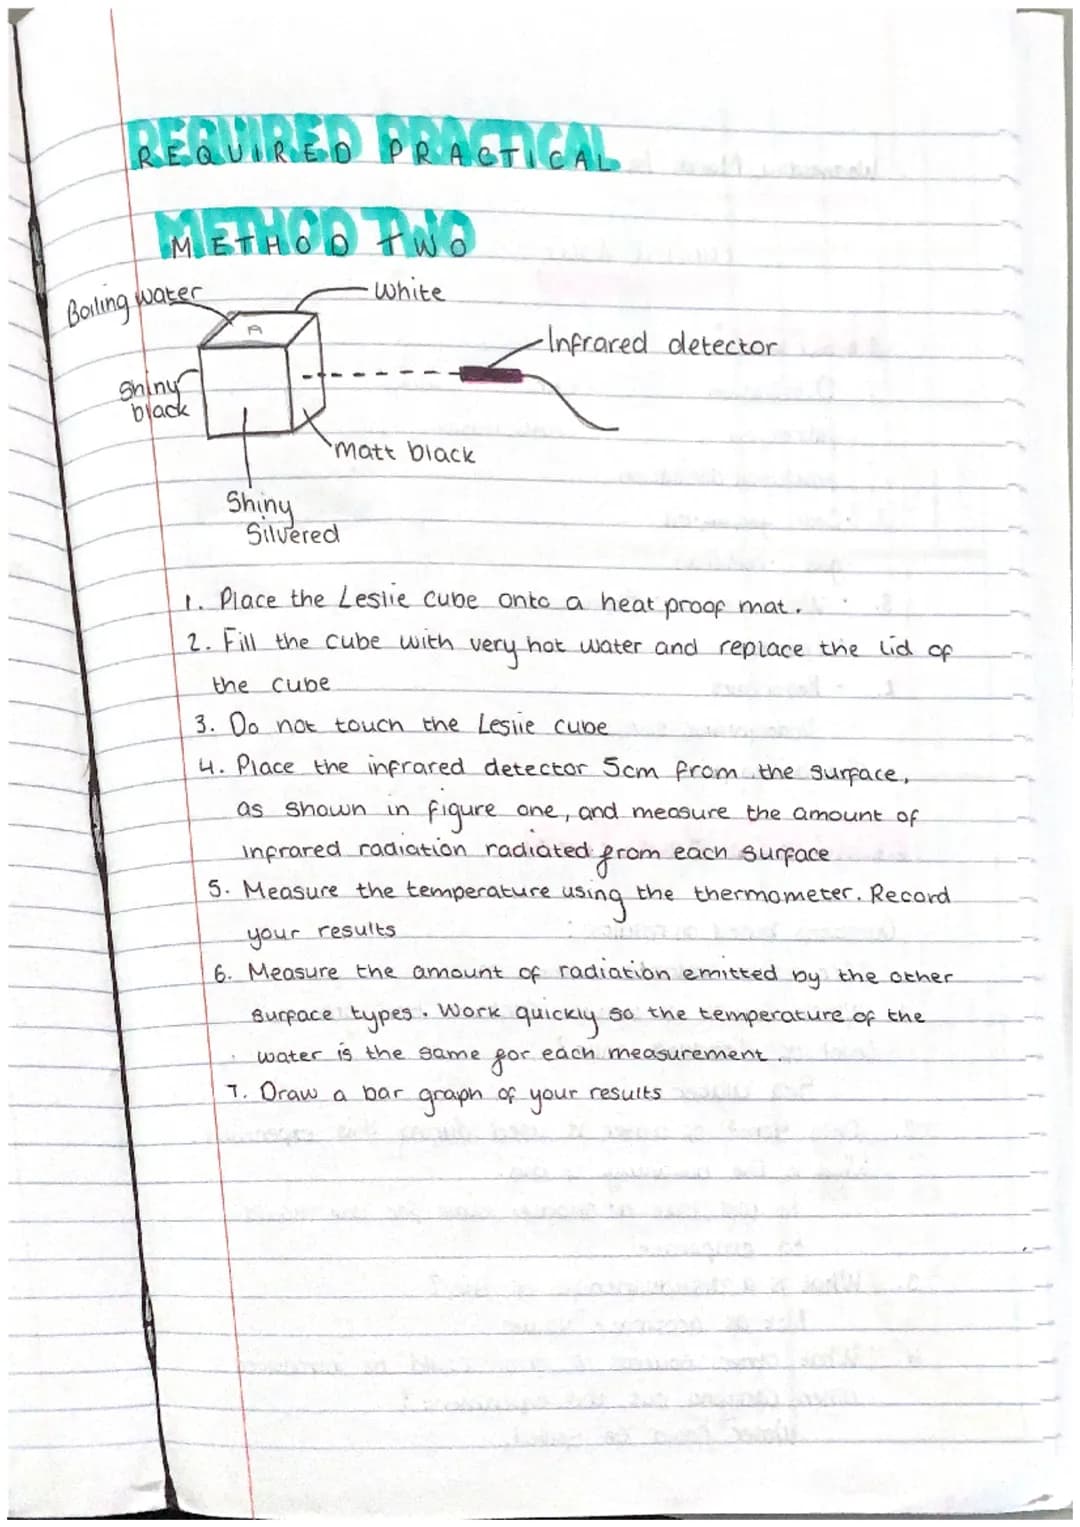 REQUIRED PRACTICAL
METHOD TWO
Boiling water
White
A
Infrared detector
Shiny
black
Matt black
Shiny
Silvered
1. Place the Leslie cube onto a heat proof mat.
2. Fill the cube with very hot water and replace the lid of
the cube
3. Do not touch the Leslie cube
4. Place the infrared detector 5cm from the surface,
as shown in figure one, and measure the amount of
infrared radiation radiated from each surface
5. Measure the temperature using the thermometer. Record
your results
6. Measure the amount of radiation emitted by the other
surface types. Work quickly so the temperature of the
water is the same for each measurement.
7. Draw a bar graph of your results